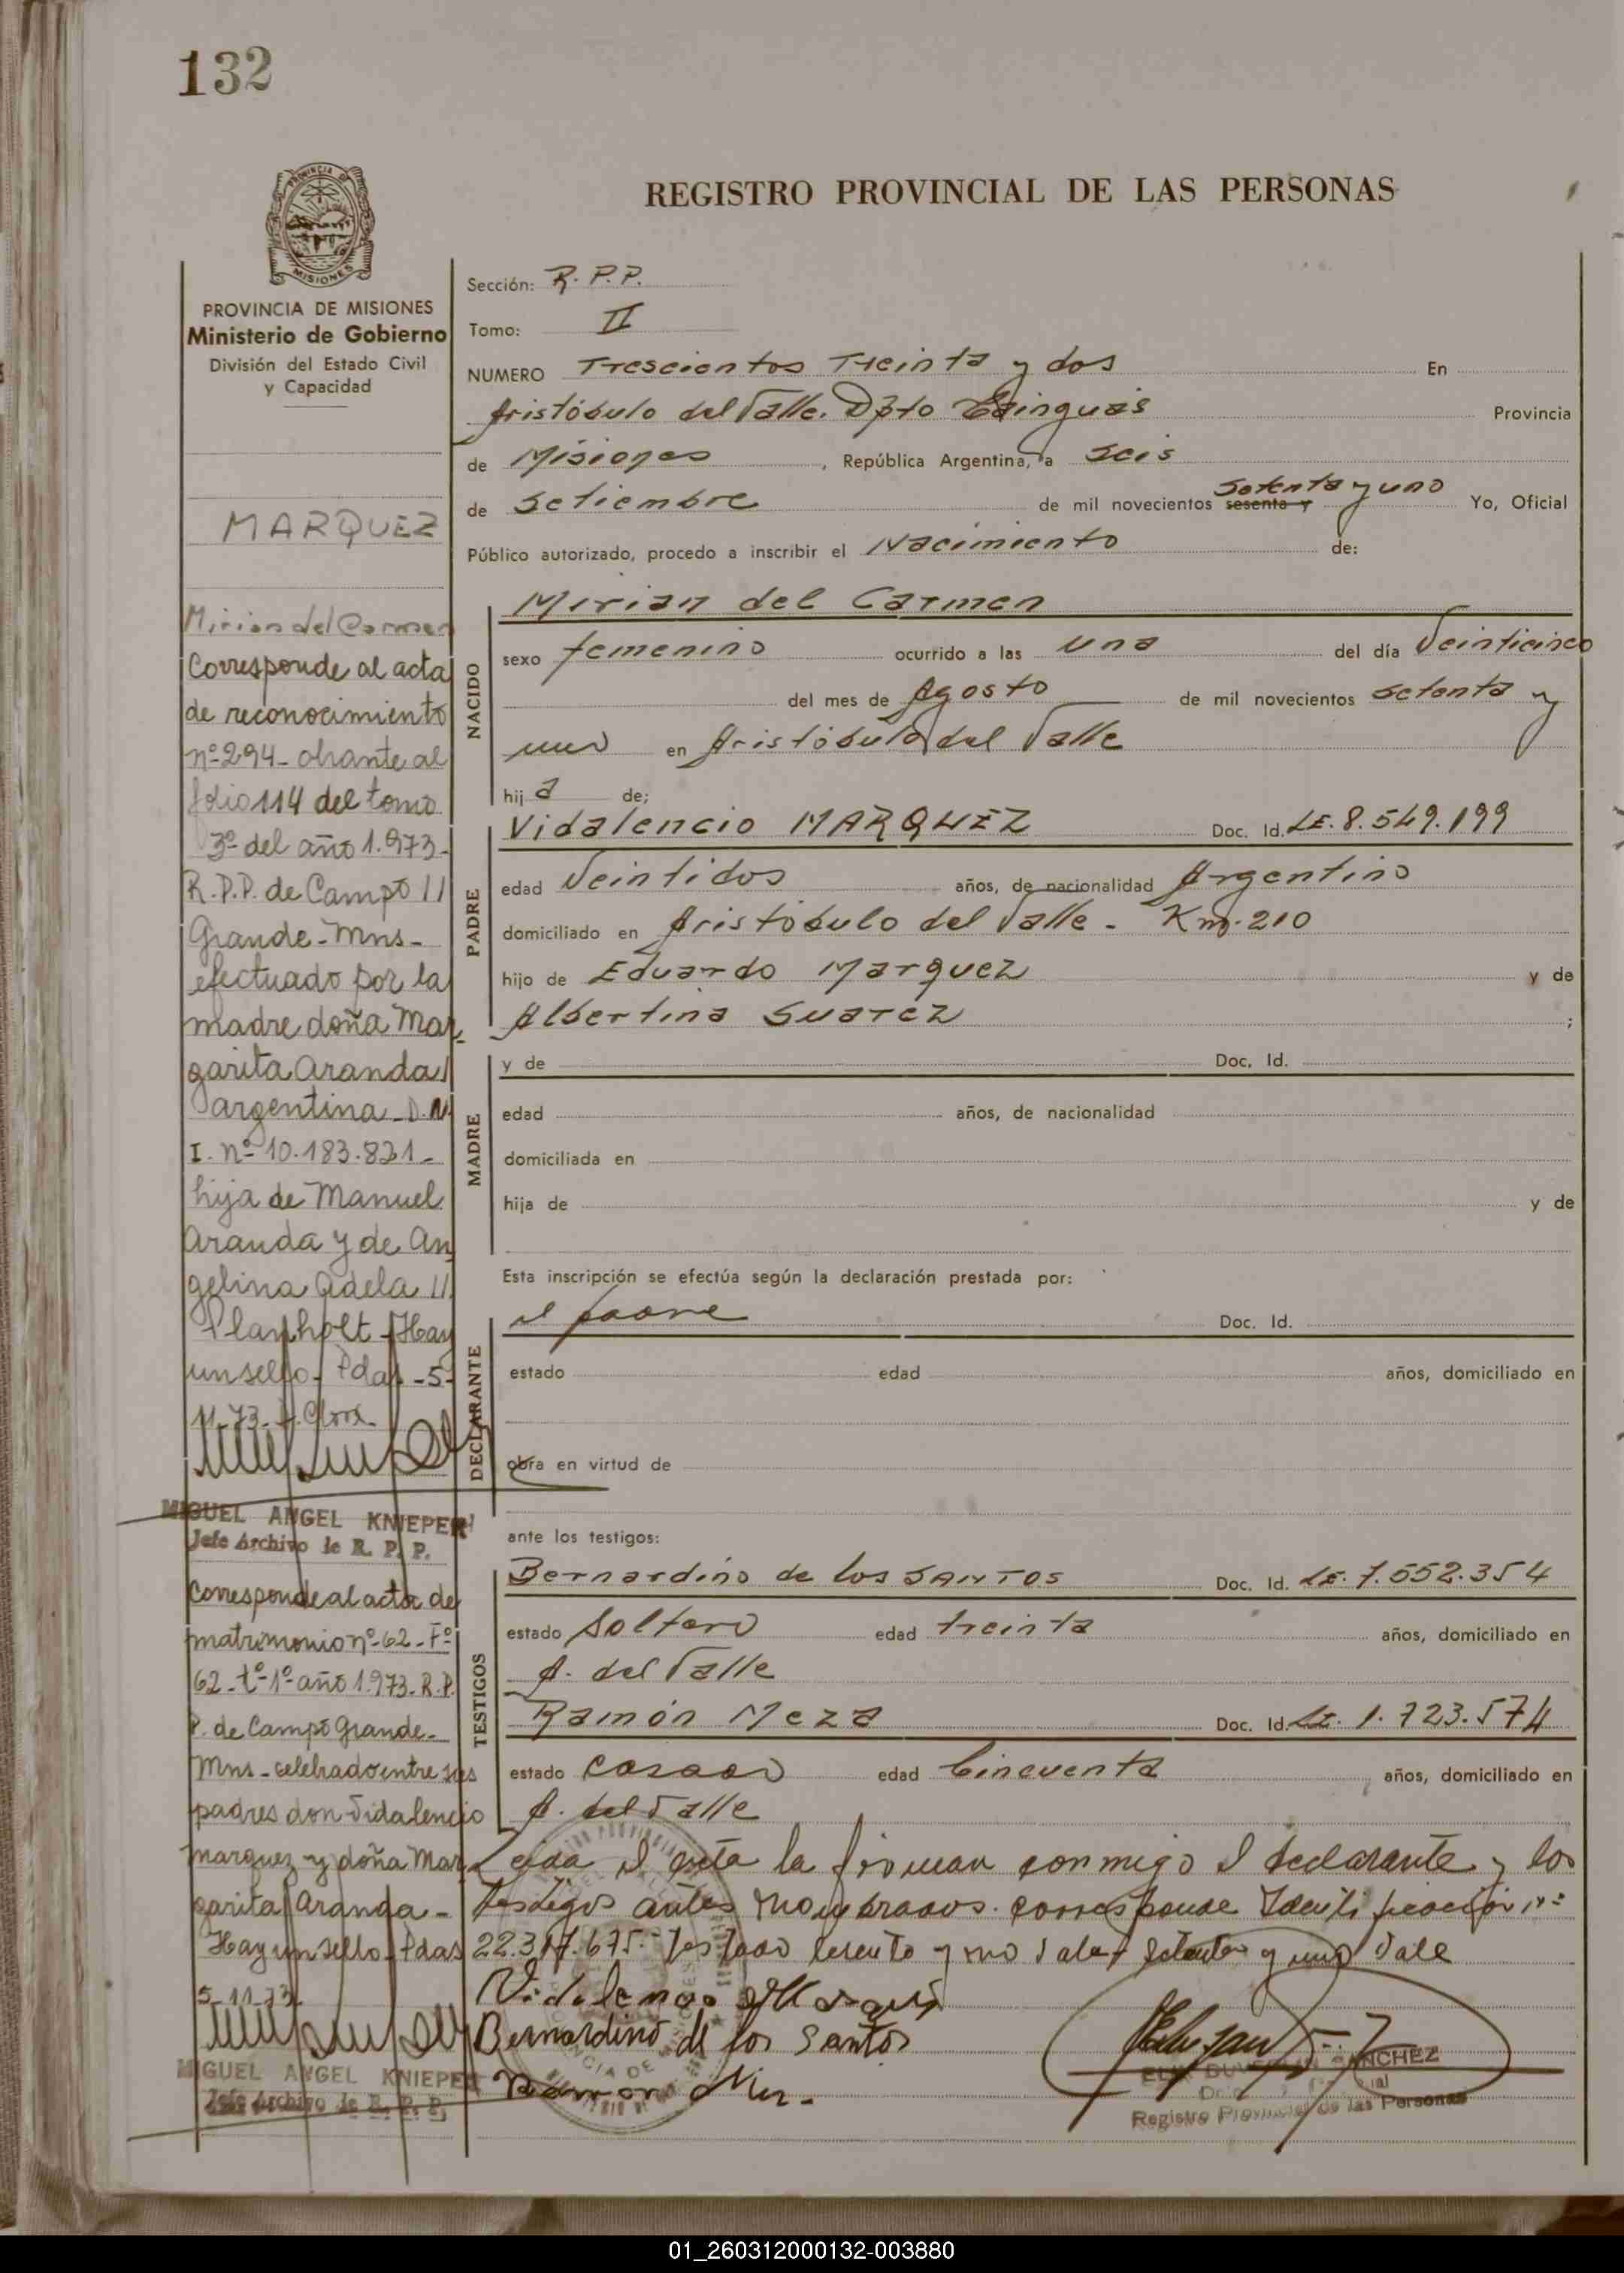 132
REGISTRO PROVINCIAL DE LAS PERSONAS
PROVINCIA DE
MISIONES
PROVINCIA DE MISIONES
Ministerio de Gobierno
División del Estado Civil
y Capacidad
MARQUEZ
Mirian del Carmen
Corresponde al acta
de reconocimiento
nº 294 - obrante al
folio 114 del tomo
3º del año 1.973-
R.P.P. de Campo //
Grande - Mns -
efectuado por la
madre doña Mar
garita Aranda/
argentina - D.N.
I. nº 10.183.821 -
hija de Manuel
Aranda y de An
gelina Adela //
Hay
un sello - Pdas - 5-
11-73-
MIGUEL ANGEL KNIEPER
Jefe Archivo de R. P. P.
Corresponde al acta de
matrimonio nº 62 - Fº
62 - tº 1º año 1.973 - R.P.
P. de Campo Grande -
Mns - celebrado entre sus
padres don Vidalencio
Marquez y doña Mar
garita Aranda -
Hay un sello - Pdas
5-11-73.
MIGUEL ANGEL KNIEPER
Jefe Archivo de R. P. P.
Sección: R. P. P.
Tomo: II
NUMERO Trescientos Treinta y dos En
Aristóbulo del Valle. Dpto Cainguás Provincia
de Misiones, República Argentina, a seis
de Setiembre de mil novecientos sesenta y setenta y uno Yo, Oficial
Público autorizado, procedo a inscribir el Nacimiento de:
NACIDO
Mirian del Carmen
sexo femenino ocurrido a las una del día Veinticinco
del mes de Agosto de mil novecientos setenta y
uno en Aristóbulo del Valle
hija de;
PADRE
Vidalencio MARQUEZ Doc. Id. LE. 8.549.199
edad Veintidos años, de nacionalidad Argentino
domiciliado en Aristóbulo del Valle - Km. 210
hijo de Eduardo Marquez y de
Albertina Suarez ;
MADRE
y de Doc. Id.
edad años, de nacionalidad
domiciliada en
hija de y de
Esta inscripción se efectúa según la declaración prestada por:
DECLARANTE
el padre Doc. Id.
estado edad años, domiciliado en
obra en virtud de
ante los testigos:
TESTIGOS
Bernardino de los SANTOS Doc. Id. LE. 7.552.354
estado soltero edad treinta años, domiciliado en
A. del Valle
Ramón Meza Doc. Id. LE. 1.723.574
estado casado edad Cincuenta años, domiciliado en
A. del Valle
Leida el acta la firman conmigo el declarante y los
testigos antes nombrados. corresponde Identificación nº
22.317.675.- Testado sesenta y no vale + setenta y uno Vale
Vidalencio Marquez
Bernardino de los Santos
Ramon
SANCHEZ
Registro Provincial de las Personas
01_260312000132-003880